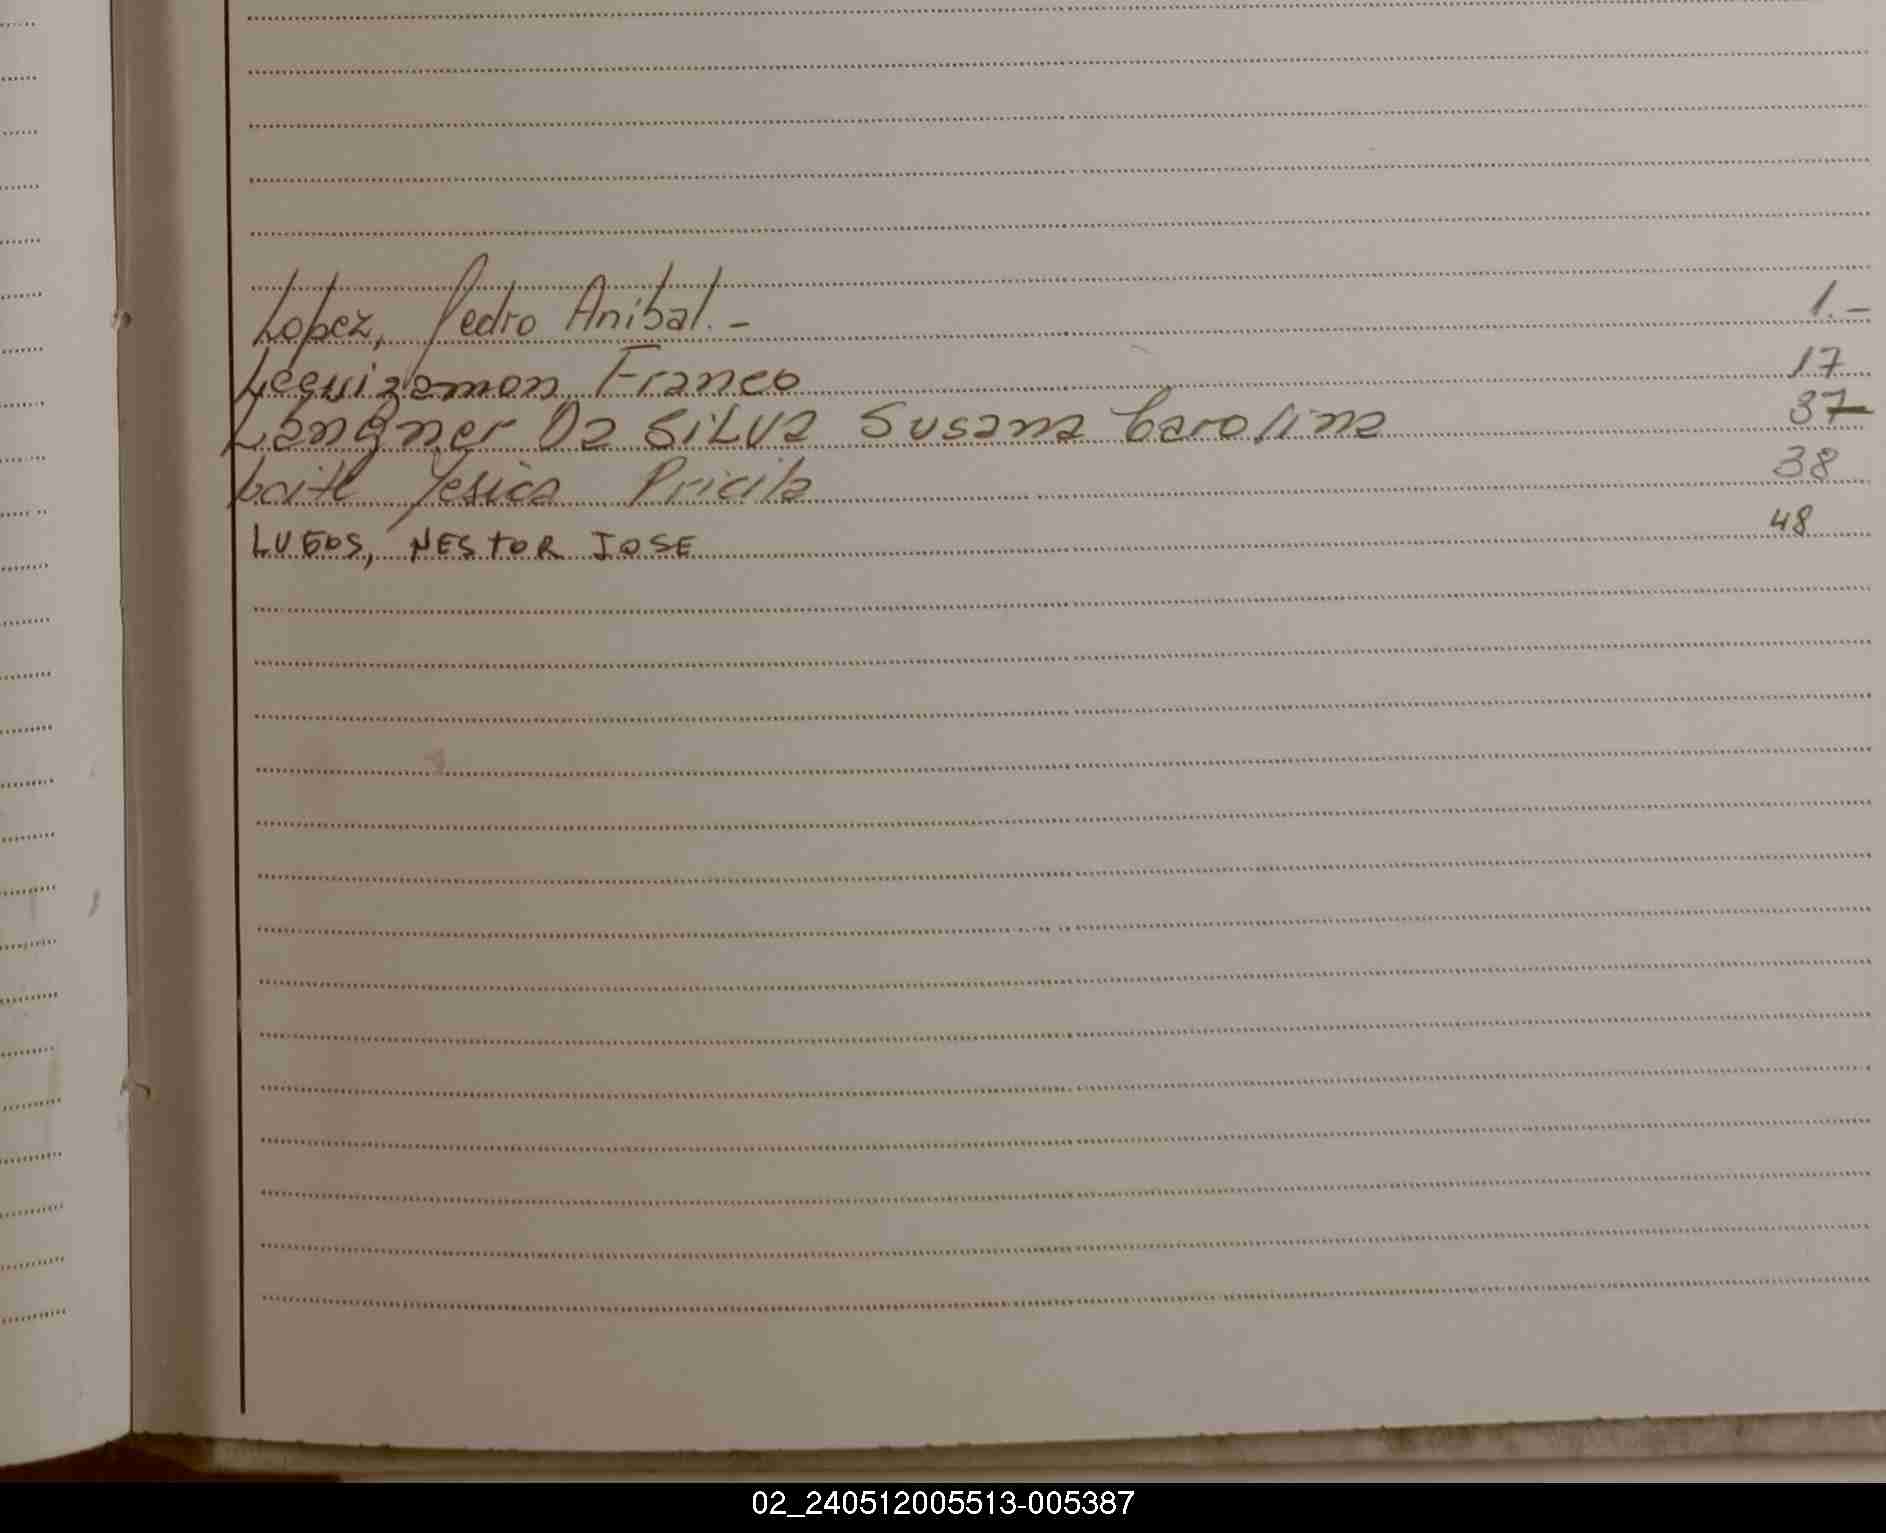 Lopez, Pedro Anibal.- 1.-
Leguizamon Franco 17
Langner Da SiLva Susana Carolina 37
Yesica Pricila 38
LUGOS, NESTOR JOSE 48
02_240512005513-005387